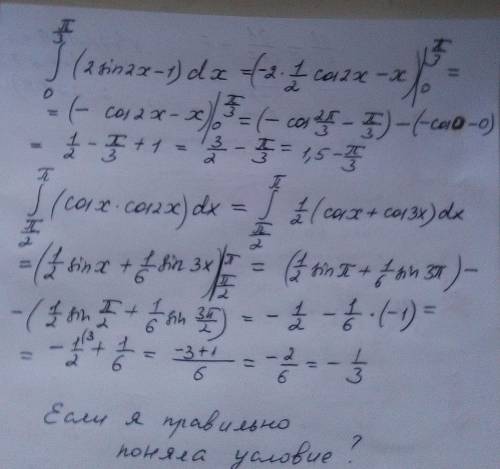 ∫₀^{π/3} (2sin2x-1)dx = (-2·1/2 cos2x-x)|₀^{π/3} =
= (- cos2x-x)|₀^{π/3} = (-cos 2π/3 - π/3) - (-cos0-0)
= 1/2 - π/3 + 1 = 3/2 - π/3 = 1,5 - π/3
∫_{π/2}^{π} (cosx·cos2x)dx = ∫_{π/2}^{π} 1/2 (cosx+cos3x)dx
= (1/2 sinx + 1/6 sin 3x)|_{π/2}^{π} = (1/2 sinπ + 1/6 sin 3π) -
- (1/2 sin π/2 + 1/6 sin 3π/2) = - 1/2 - 1/6 · (-1) =
= - 1/2 ⁽³ + 1/6 = (-3+1)/6 = - 2/6 = - 1/3
Если я правильно
поняла условие?